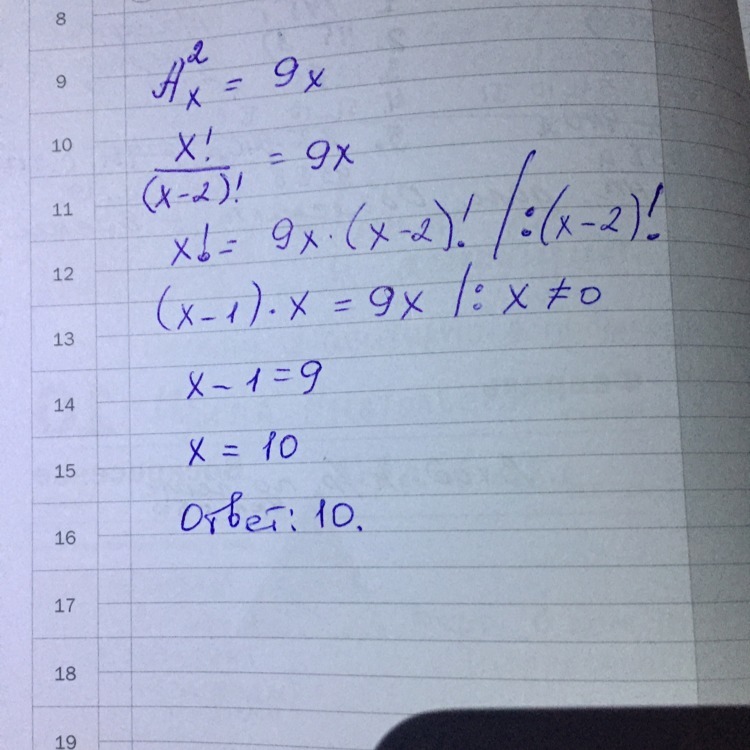 8
9 A_x^2 = 9x
10 x!/(x-2)! = 9x
11 x! = 9x·(x-2)! /:(x-2)!
12 (x-1)·x = 9x /: x ≠ 0
13
x-1=9
14
x = 10
15
Ответ: 10.
16
17
18
19